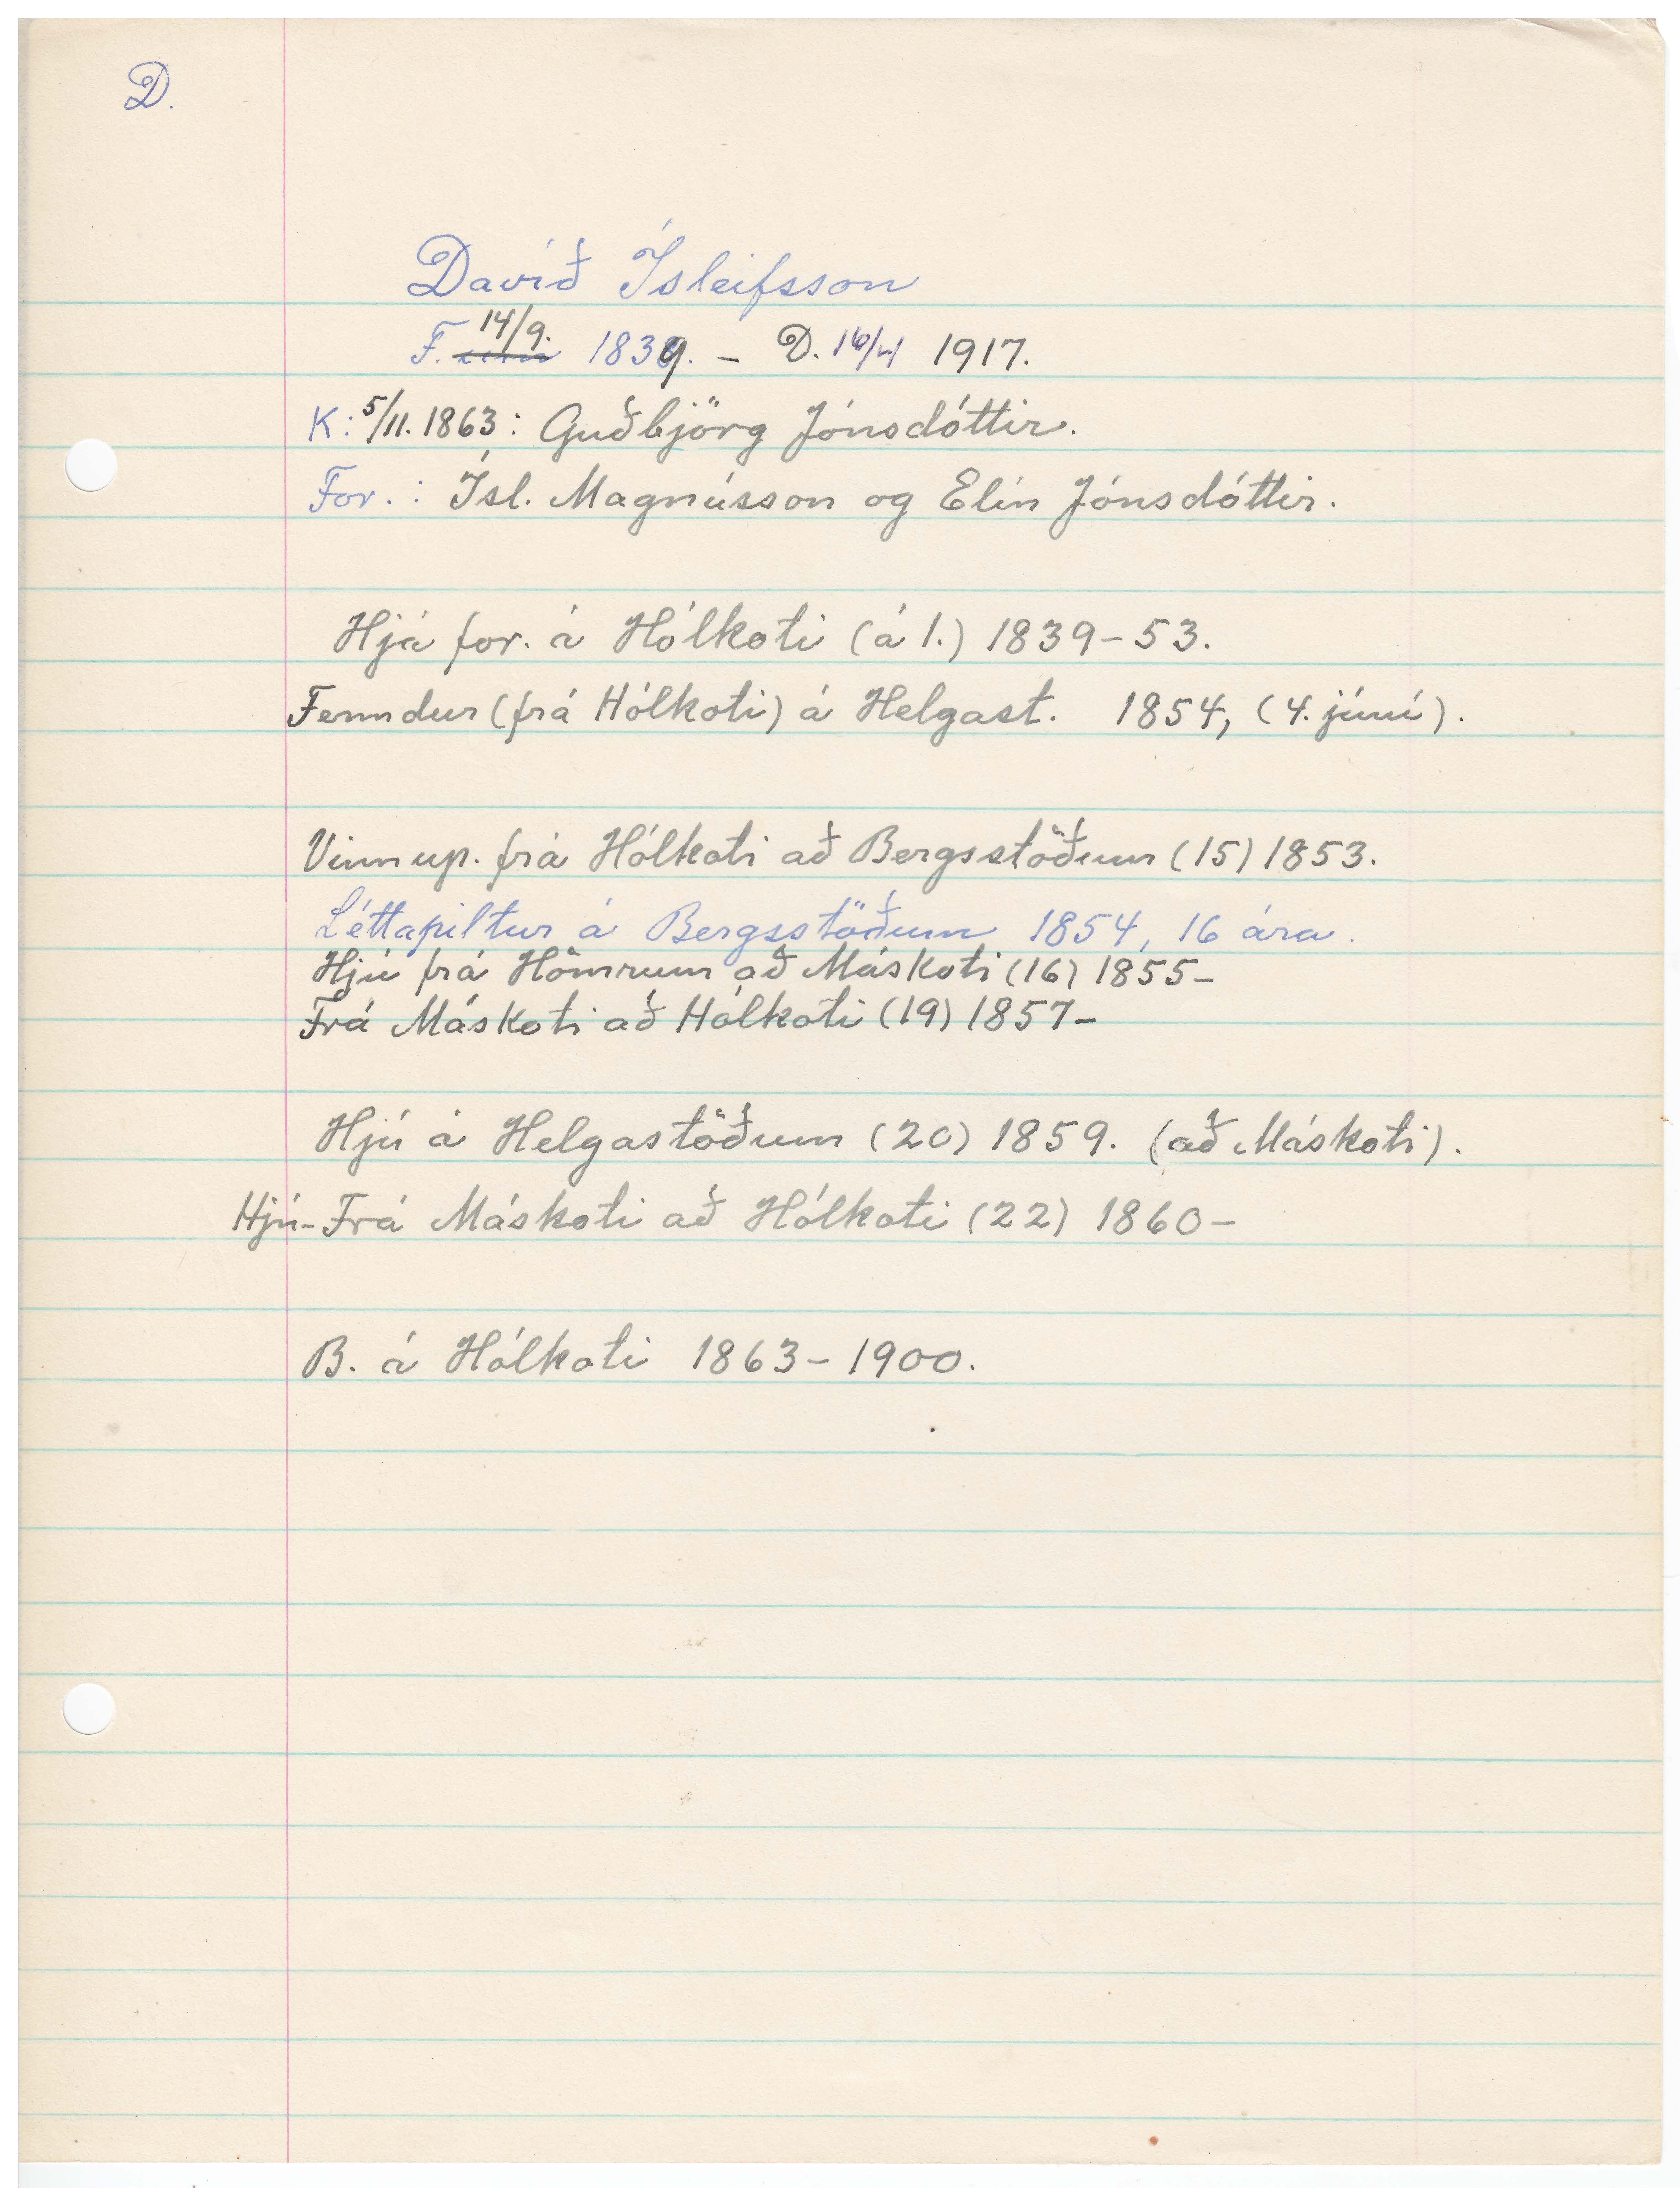 D.
Davíð Ísleifsson
F. 14/9. 1839. – D. 16/4 1917.
K: 5/11. 1863: Guðbjörg Jónsdóttir.
For.: Ísl. Magnússon og Elín Jónsdóttir.
Hjá for. á Hólkoti (á 1.) 1839–53.
Fermdur (frá Hólkoti) á Helgast. 1854, (4. júní).
Vinnup. frá Hólkoti að Bergsstöðum (15) 1853.
Léttapiltur á Bergsstöðum 1854, 16 ára.
Hjú frá Hömrum að Máskoti (16) 1855–
Frá Máskoti að Hólkoti (19) 1857–
Hjú á Helgastöðum (20) 1859. (að Máskoti).
Hjú–Frá Máskoti að Hólkoti (22) 1860–
B. á Hólkoti 1863–1900.